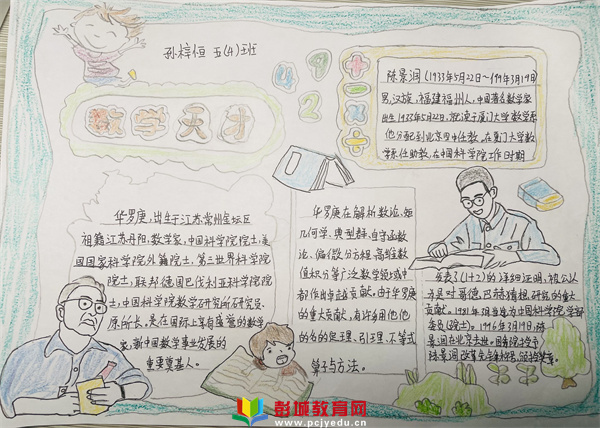 孙梓恒 五(4)班
数学天才
陈景润(1933年5月22日~1996年3月19日
男,汉族,福建福州人,中国著名数学家
出生1933年5月22日,就读于厦门大学数学系
他分配到北京四中任教,在厦门大学数
学系任助教,在中国科学院工作时期
华罗庚,出生于江苏常州金坛区
祖籍江苏丹阳,数学家,中国科学院院士,美
国国家科学院外籍院士,第三世界科学院
院士,联邦德国巴伐利亚科学院院
士,中国科学院数学研究所研究员、
原所长,是在国际上享有盛誉的数学
家,新中国数学事业发展的
重要奠基人。
华罗庚在解析数论,矩
几何学,典型群,自守函数
论、偏微分方程、高维数
值积分等广泛数学领域中
都作出卓越贡献。由于华罗庚
的重大贡献,有许多用他
的名的定理、引理、不等式
算子与方法。
发表了(1+2)的详细证明,被公认
为是对哥德巴赫猜想研究的重大
贡献。1981年3月当选为中国科学院学部
委员(院士)。1996年3月19日,陈
景润在北京去世。
彭城教育网
www.pcjyedu.cn